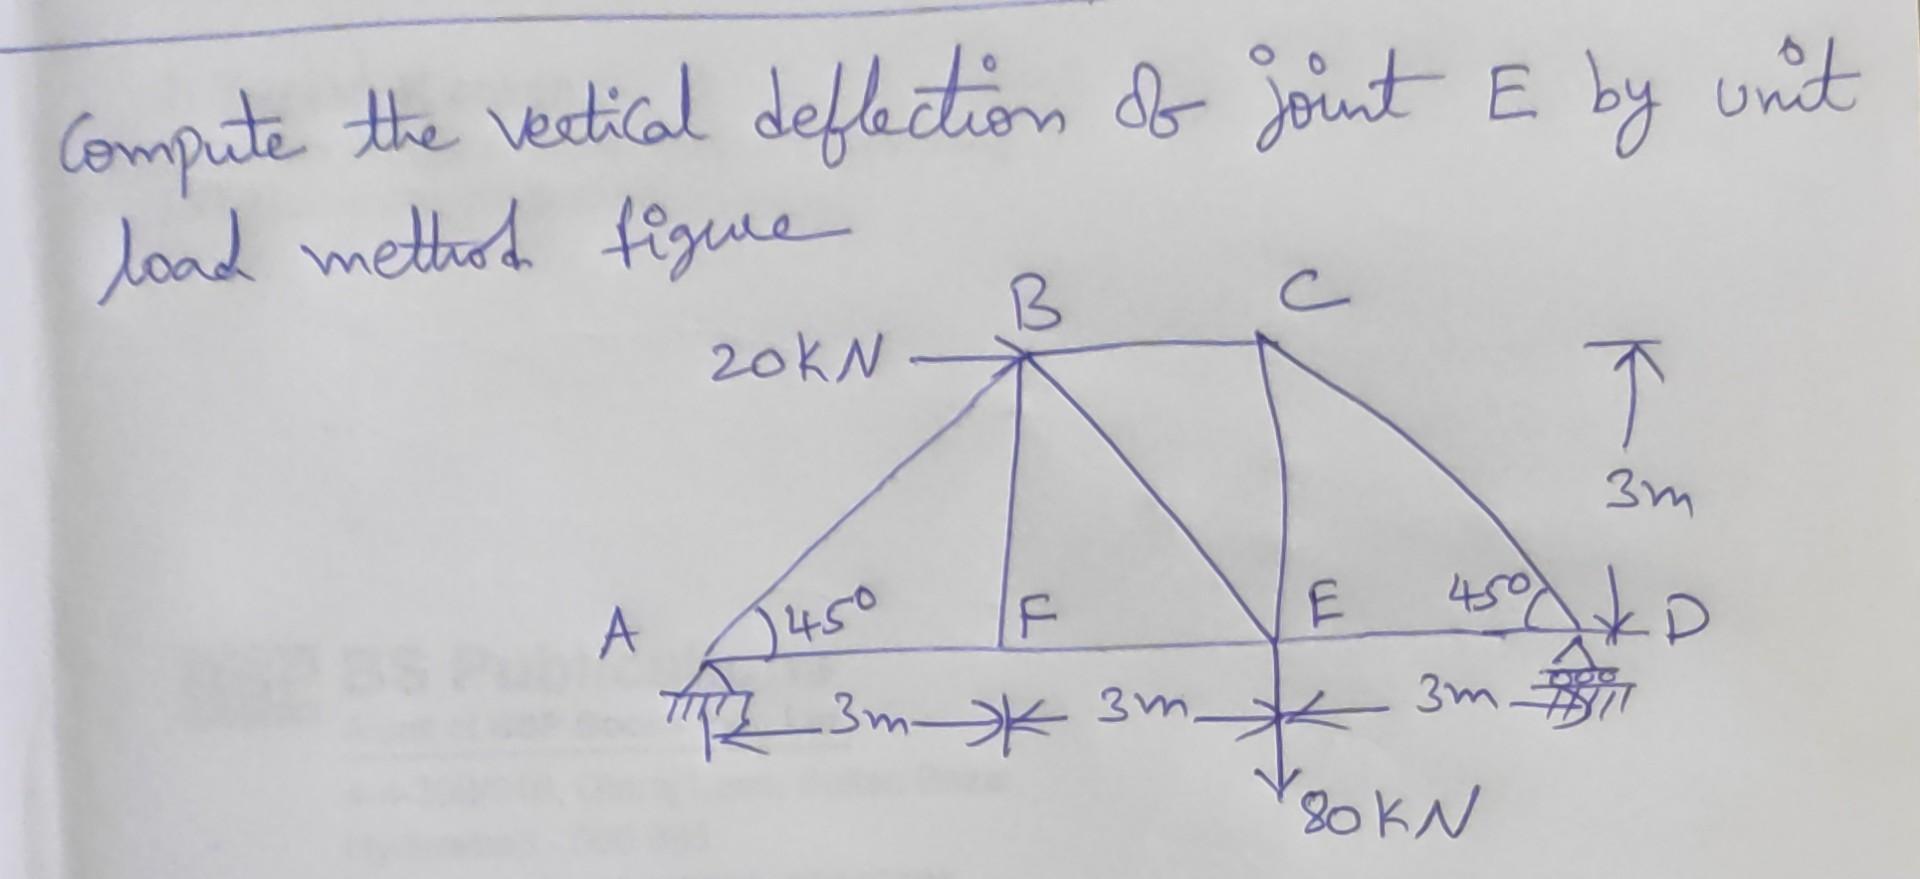 Compute the vertical deflection of joint E by unit
load method figure
B
C
20KN
3m
A
45°
F
E
45°
D
3m
3m
3m
80KN
BS Publications